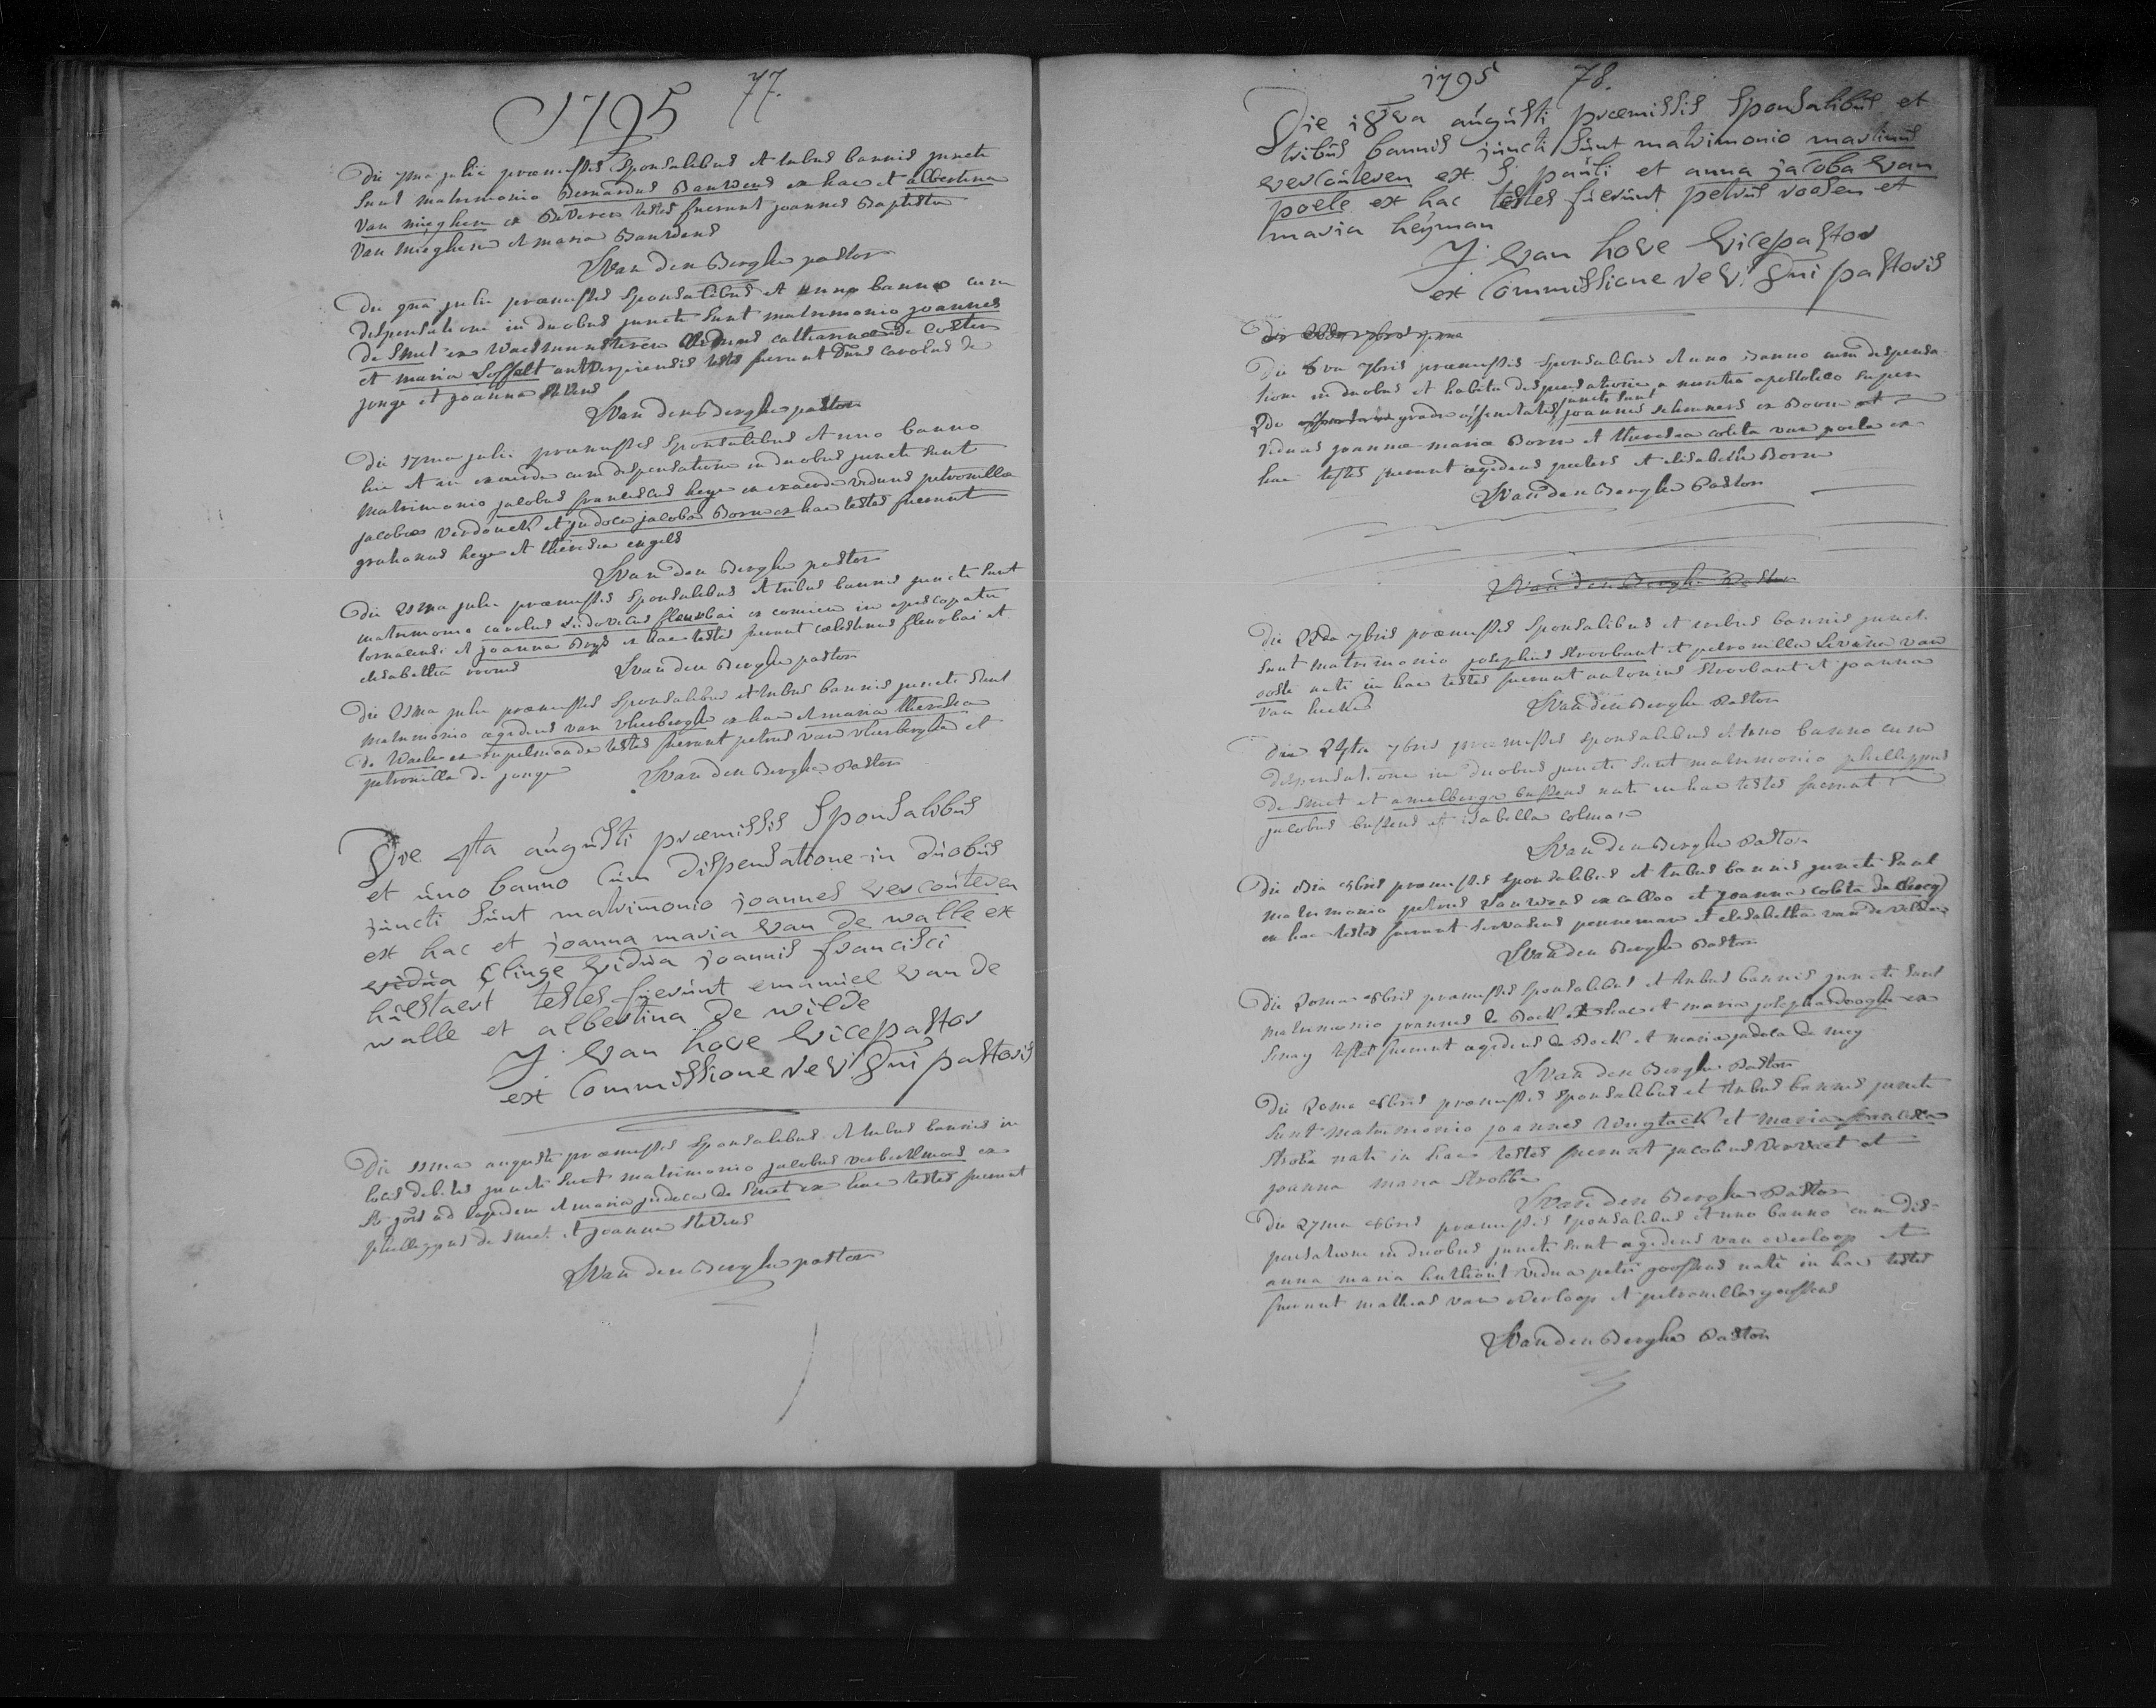 1795 77.
Die 7ma julii præmissis sponsalibus et tribus bannis juncti
sunt matrimonio Bernardus Bauwens ex hac et albertina
van mieghem ex Beveren testes fuerunt joannes Baptista
van mieghem et maria Bauwens
Van den Berghe pastor
Die 9na julii præmissis sponsalibus et uno banno cum
dispensatione in duobus juncti sunt matrimonio joannes
de Smet ex Waesmunster viduus catharinæ de Coster
et maria antverpiensis testes fuerunt Dnus carolus de
jonge et joanna stevens
Van den Berghe pastor
Die 17ma julii præmissis sponsalibus et uno banno
hic et in exaerde cum dispensatione in duobus juncti sunt
matrimonio jacobus franciscus heye ex exaerde viduus petronilla
jacoba verdonck et judoca jacoba Born ex hac testes fuerunt
gratianus heye et theresia engels
Van den Berghe pastor
Die 21ma julii præmissis sponsalibus et tribus bannis juncti sunt
matrimonio carolus ludovicus fleurbai ex comien in episcopatu
tornacensi et joanna Buys ex hac testes fuerunt cælestinus fleurbai et
elisabetha vroms Van den Berghe pastor
Die 21ma julii præmissis sponsalibus et tribus bannis juncti sunt
matrimonio ægidius van vlierberghe ex hac et maria theresia
de Waele ex rupelmonde testes fuerunt petrus van vlierberghe et
petronilla de jonge Van den Berghe Pastor
Die 4ta augusti præmissis sponsalibus
et uno banno cum dispensatione in duobus
juncti sunt matrimonio joannes vercauteren
ex hac et joanna maria van de walle ex
vidua Clinge vidua joannis francisci
hulstaert testes fuerunt emanuel van de
walle et albertina de wilde
J. van hove vicepastor
ex Commissione Revdi Dni pastoris
Die 11ma augusti præmissis sponsalibus et tribus bannis in
locis debitis juncti sunt matrimonio jacobus verbuekmoes ex
St gillis ad lapidem et maria judoca de Smet ex hac testes fuerunt
philippus de Smet et joanna stevens
Van den Berghe pastor
1795 78.
Die 18va augusti præmissis sponsalibus et
tribus bannis juncti sunt matrimonio martinus
vercauteren ex S. pauli et anna jacoba van
poele ex hac testes fuerunt petrus roosen et
maria heyman
J. van hove vicepastor
ex Commissione Revdi Dni pastoris
Die 8va 7bris præmissis sponsalibus et uno banno cum dispensa
tione in duobus et habita dispensatione a nuntio apostolico super
2do gradu affinitatis juncti sunt joannes ex Born et
viduus joannæ mariæ Born et theresia coleta van poele ex
hac testes fuerunt ægidius peeters et elisabeth Born
Van den Berghe Pastor
Van den Berghe Pastor
Die 22da 7bris præmissis sponsalibus et tribus bannis juncti
sunt matrimonio josephus stroobant et petronilla Livina van
oost nati in hac testes fuerunt antonius stroobant et joanna
van hecke Van den Berghe Pastor
Die 24ta 7bris præmissis sponsalibus et uno banno cum
dispensatione in duobus juncti sunt matrimonio philippus
de Smet et amelberga bussens nati in hac testes fuerunt
jacobus bussens et isabella colman
Van den Berghe Pastor
Die 8bris præmissis sponsalibus et tribus bannis juncti sunt
matrimonio petrus van ex calloo et joanna coleta de clercq
ex hac testes fuerunt servatius penneman et elisabetha van de velde
Van den Berghe Pastor
Die 20ma 8bris præmissis sponsalibus et tribus bannis juncti sunt
matrimonio joannes de Bock ex hac et maria josepha dooghe ex
Sinay testes fuerunt ægidius de Bock et maria judoca de mey
Van den Berghe Pastor
Die 20ma 8bris præmissis sponsalibus et tribus bannis juncti
sunt matrimonio joannes Wuytack et maria francisca
Strobbe nati in hac testes fuerunt jacobus Vervaet et
joanna maria Strobbe
Van den Berghe Pastor
Die 27ma 8bris præmissis sponsalibus et uno banno cum dis-
pensatione in duobus juncti sunt ægidius van overloop et
anna maria vidua petri goossens nati in hac testes
fuerunt mathias van overloop et petronilla goossens
Van den Berghe Pastor